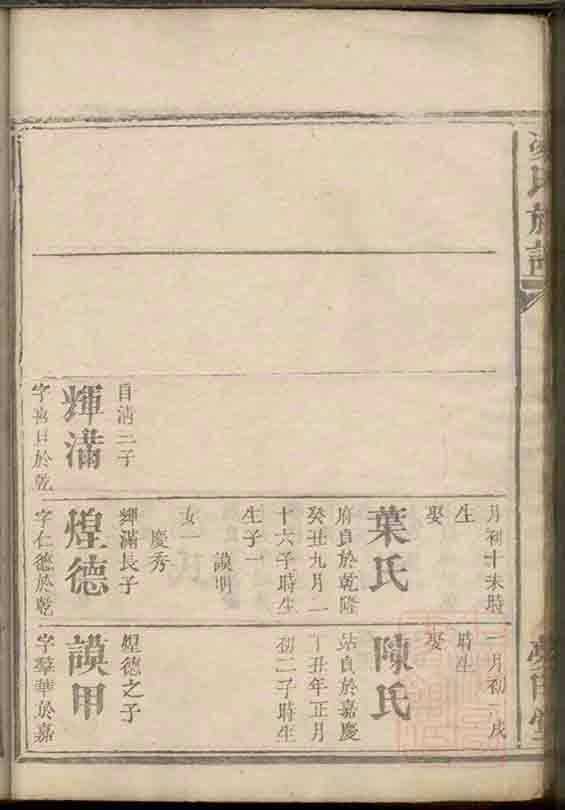 氏族譜
月初十未時
生
娶
葉氏
府貞於乾隆
癸丑九月二
十六子時生
生子一
謨明
女一
慶秀
輝滿長子
煌德
字仁德於乾
時生
娶
陳氏
貞於嘉慶
丁丑年正月
初二子時生
煌德之子
謨甲
字羣華於嘉
自清二子
輝滿
於乾